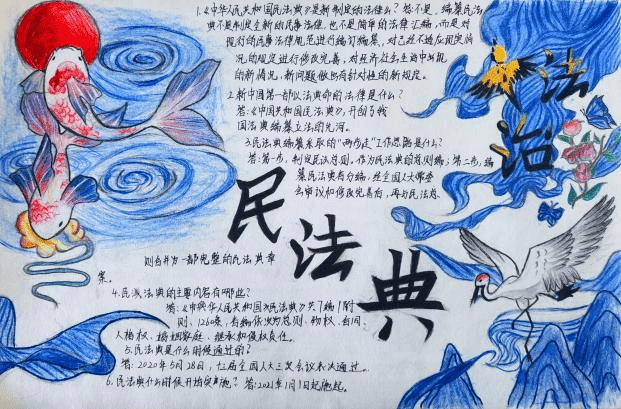 1.《中华人民共和国民法典》是新制定的法律么? 答:不是,编纂民法
典不是制定全新的民事法律,也不是简单的法律汇编,而是对
现行的民事法律规范进行编订编纂,对已经不适应现实情
况的规定进行修改完善,对经济社会生活中出现
的新情况、新问题做出有针对性的新规定。
2.新中国第一部以法典命名的法律是什么?
答:《中国共和国民法典》,开创了我
国法典编纂立法的先河。
3.民法典编纂采取的“两步走”工作思路是什么?
答:第一步,制定民法总则,作为民法典的总则编;第二步,编
纂民法典各分编,经全国人大常委
会审议和修改完善后,再与民法总
则合并为一部完整的民法典草
案。
4.民法典的主要内容有哪些?
答:《中华人民共和国民法典》共7编1附
则、1260条,各编依次为总则、物权、合同、
人格权、婚姻家庭、继承和侵权责任。
5.民法典是什么时候通过的?
答:2020年5月28日,十三届全国人大三次会议表决通过。
6.民法典什么时候开始实施? 答:2021年1月1日起施起。
民法典
法治